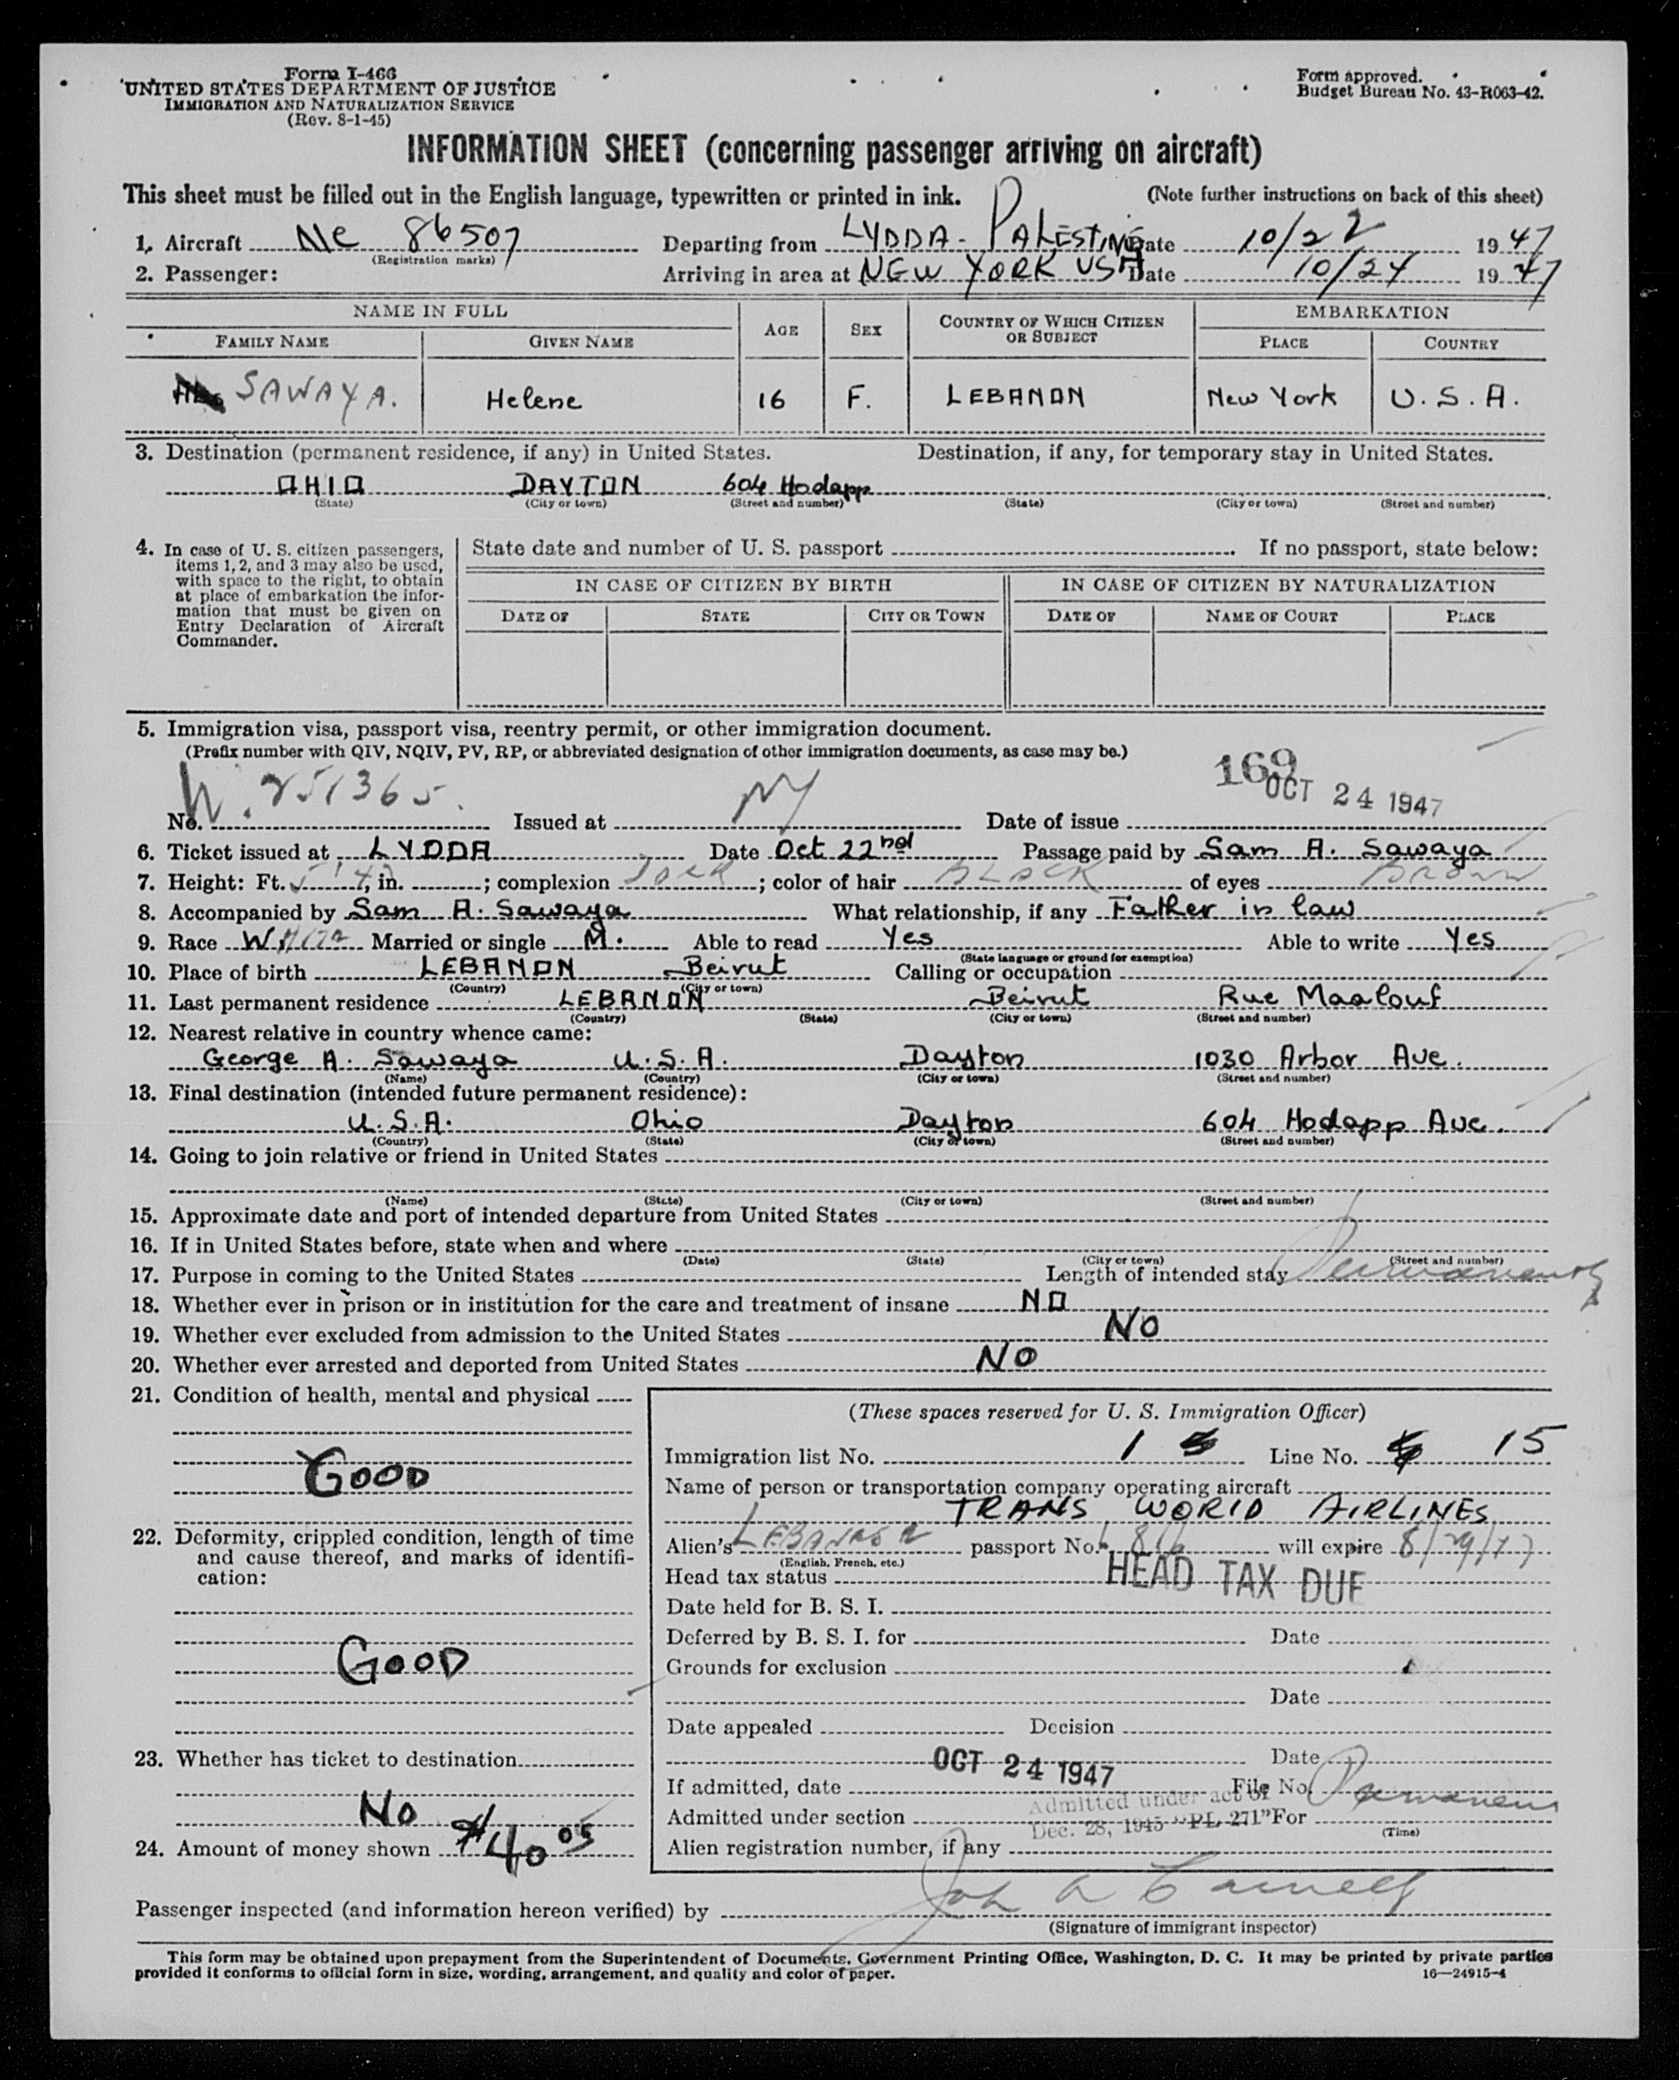 Form I-466
UNITED STATES DEPARTMENT OF JUSTICE
IMMIGRATION AND NATURALIZATION SERVICE
(Rev. 8-1-45)
Form approved.
Budget Bureau No. 43-R063-42.
INFORMATION SHEET (concerning passenger arriving on aircraft)
This sheet must be filled out in the English language, typewritten or printed in ink. (Note further instructions on back of this sheet)
1. Aircraft Nc 86507 Departing from LYDDA - PALESTINE Date 10/22 1947
(Registration marks)
2. Passenger: Arriving in area at NEW YORK USA Date 10/24 1947
NAME IN FULL AGE SEX COUNTRY OF WHICH CITIZEN OR SUBJECT EMBARKATION
FAMILY NAME GIVEN NAME PLACE COUNTRY
SAWAYA. Helene 16 F. LEBANON New York U.S.A.
3. Destination (permanent residence, if any) in United States. Destination, if any, for temporary stay in United States.
OHIO DAYTON 604 Hodapp
(State) (City or town) (Street and number) (State) (City or town) (Street and number)
4. In case of U. S. citizen passengers, items 1, 2, and 3 may also be used, with space to the right, to obtain at place of embarkation the information that must be given on Entry Declaration of Aircraft Commander.
State date and number of U. S. passport . If no passport, state below:
IN CASE OF CITIZEN BY BIRTH IN CASE OF CITIZEN BY NATURALIZATION
DATE OF STATE CITY OR TOWN DATE OF NAME OF COURT PLACE
5. Immigration visa, passport visa, reentry permit, or other immigration document.
(Prefix number with QIV, NQIV, PV, RP, or abbreviated designation of other immigration documents, as case may be.)
169
OCT 24 1947
No. 251365. Issued at NY Date of issue
6. Ticket issued at LYDDA Date Oct 22nd Passage paid by Sam A. Sawaya
7. Height: Ft. 5' 4, in. ; complexion Dark ; color of hair BLACK of eyes BROWN
8. Accompanied by Sam A. Sawaya What relationship, if any Father in law
9. Race WHITE Married or single M. Able to read Yes Able to write Yes
(State language or ground for exemption)
10. Place of birth LEBANON Beirut Calling or occupation
(Country) (City or town)
11. Last permanent residence LEBANON Beirut Rue Maalouf
(Country) (State) (City or town) (Street and number)
12. Nearest relative in country whence came:
George A. Sawaya U.S.A. Dayton 1030 Arbor Ave.
(Name) (Country) (City or town) (Street and number)
13. Final destination (intended future permanent residence):
U.S.A. Ohio Dayton 604 Hodapp Ave.
(Country) (State) (City or town) (Street and number)
14. Going to join relative or friend in United States
(Name) (State) (City or town) (Street and number)
15. Approximate date and port of intended departure from United States
16. If in United States before, state when and where
(Date) (State) (City or town) (Street and number)
17. Purpose in coming to the United States Length of intended stay Permanently
18. Whether ever in prison or in institution for the care and treatment of insane NO
19. Whether ever excluded from admission to the United States NO
20. Whether ever arrested and deported from United States NO
21. Condition of health, mental and physical
GOOD
22. Deformity, crippled condition, length of time and cause thereof, and marks of identification:
GOOD
23. Whether has ticket to destination
No
24. Amount of money shown $40 05
(These spaces reserved for U. S. Immigration Officer)
Immigration list No. 1 Line No. 15
Name of person or transportation company operating aircraft
TRANS WORLD AIRLINES
Alien's LEBANESE passport No. 816 will expire
(English, French, etc.)
Head tax status HEAD TAX DUE
Date held for B. S. I.
Deferred by B. S. I. for Date
Grounds for exclusion
Date
Date appealed Decision
Date
If admitted, date OCT 24 1947 File No.
Admitted under section Admitted under act of Dec. 28, 1945 "PL 271" For Permanent
(Time)
Alien registration number, if any
Passenger inspected (and information hereon verified) by
(Signature of immigrant inspector)
This form may be obtained upon prepayment from the Superintendent of Documents, Government Printing Office, Washington, D. C. It may be printed by private parties
provided it conforms to official form in size, wording, arrangement, and quality and color of paper. 16—24915-4